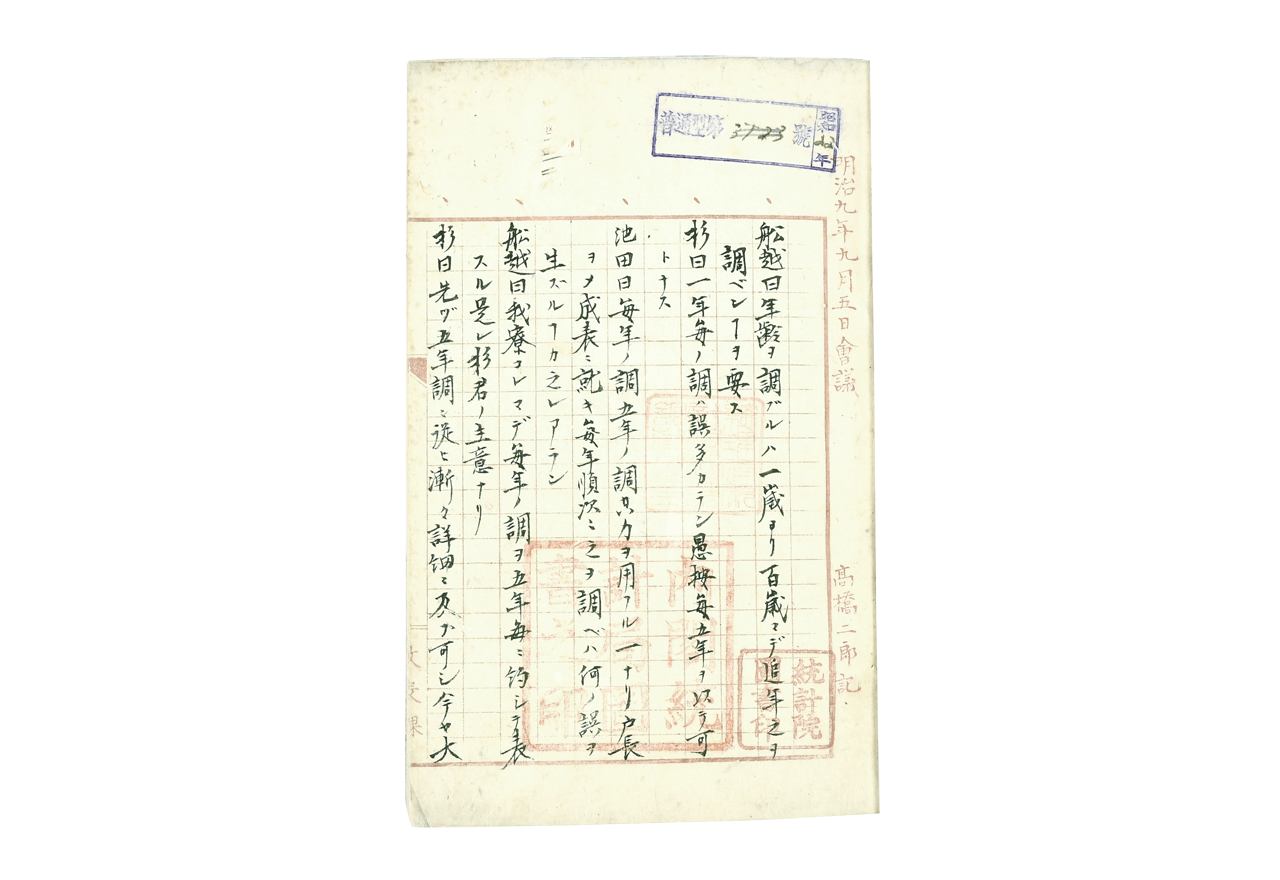 明治九年九月五日會議
高橋二郎記
普通型第3723號
昭和 年
船越曰年齡ヲ調ブルハ一歳ヨリ百歳マデ追年之ヲ
調ベンヿヲ要ス
杉曰一年毎ノ調ハ誤多カラン愚按毎五年ヲ以テ可
トナス
池田曰毎年ノ調五年ノ調共力ヲ用フル一ナリ戸長
ヲメ成表ニ就キ毎年順次ニ之ヲ調ベハ何ノ誤ヲ
生ズルヿカ之レアラン
船越曰我寮コレマデ毎年ノ調ヲ五年毎ニ約シテ表
スル是レ杉君ノ主意ナリ
杉曰先ヅ五年調ニ從ヒ漸々詳細ニ及ブ可シ今ヤ大
内閣統計局圖書之印
統計院圖書印